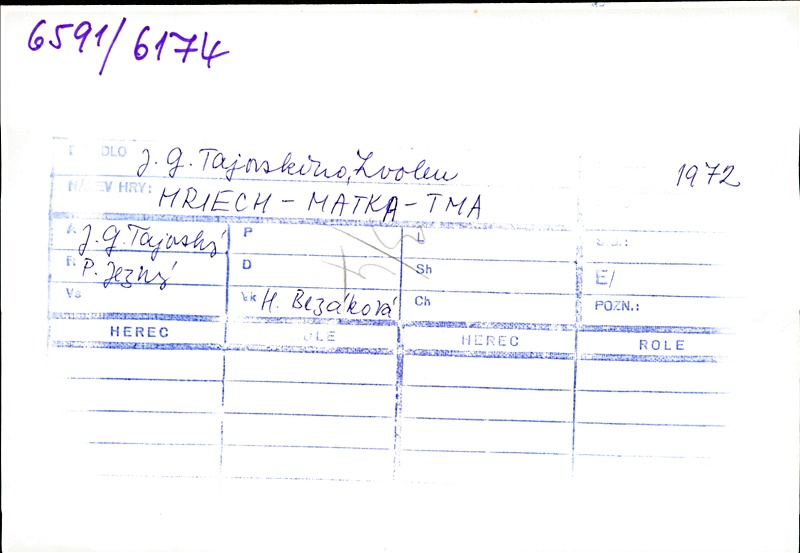 6591/6174
DIVADLO J. G. Tajovského, Zvolen 1972
NÁZEV HRY: HRIECH - MATKA - TMA
A J. G. Tajovský P S.J.:
R P. Jezný D Sh E/
Vk H. Bezáková Ch POZN.:
HEREC ROLE HEREC ROLE